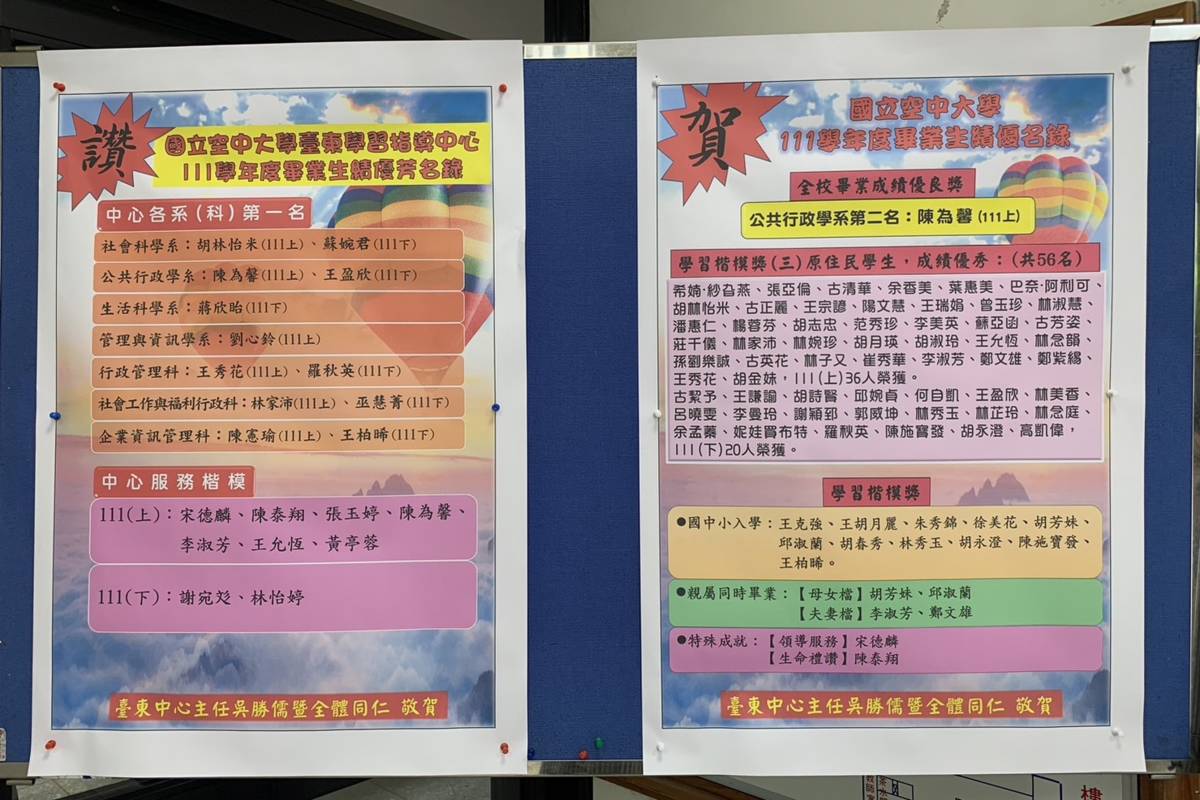 讚
國立空中大學臺東學習指導中心
111學年度畢業生績優芳名錄
中心各系(科)第一名
社會科學系：胡林怡米(111上)、蘇婉君(111下)
公共行政學系：陳為馨(111上)、王盈欣(111下)
生活科學系：蔣欣眙(111下)
管理與資訊學系：劉心鈴(111上)
行政管理科：王秀花(111上)、羅秋英(111下)
社會工作與福利行政科：林家沛(111上)、巫慧菁(111下)
企業資訊管理科：陳憲瑜(111上)、王柏晞(111下)
中心服務楷模
111(上)：宋德麟、陳泰翔、張玉婷、陳為馨、
李淑芳、王允恆、黃亭蓉
111(下)：謝宛彣、林怡婷
臺東中心主任吳勝儒暨全體同仁 敬賀
賀
國立空中大學
111學年度畢業生績優名錄
全校畢業成績優良獎
公共行政學系第二名：陳為馨(111上)
學習楷模獎(三)原住民學生，成績優秀：(共56名)
希婻·紗旮燕、張亞倫、古清華、余香美、葉惠美、巴奈·阿利可、
胡林怡米、古正麗、王宗諺、陽文慧、王瑞娟、曾玉珍、林淑慧、
潘惠仁、楊蓉芬、胡志忠、范秀珍、李美英、蘇亞函、古芳姿、
莊千儀、林家沛、林婉珍、胡月瑛、胡淑玲、王允恆、林念韻、
孫劉樂誠、古英花、林子又、崔秀華、李淑芳、鄭文雄、鄭紫緆
王秀花、胡金妹，111(上)36人榮獲。
古絜予、王謙諭、胡詩賢、邱婉貞、何自凱、王盈欣、林美香、
呂曉雯、李曼玲、謝穎郅、郭威坤、林秀玉、林芷玲、林念庭、
余孟蓁、妮娃買布特、羅秋英、陳施寶發、胡永澄、高凱偉，
111(下)20人榮獲。
學習楷模獎
●國中小入學：王克強、王胡月麗、朱秀錦、徐美花、胡芳妹、
邱淑蘭、胡春秀、林秀玉、胡永澄、陳施寶發、
王柏晞。
●親屬同時畢業：【母女檔】胡芳妹、邱淑蘭
【夫妻檔】李淑芳、鄭文雄
●特殊成就：【領導服務】宋德麟
【生命禮讚】陳泰翔
臺東中心主任吳勝儒暨全體同仁 敬賀
樓